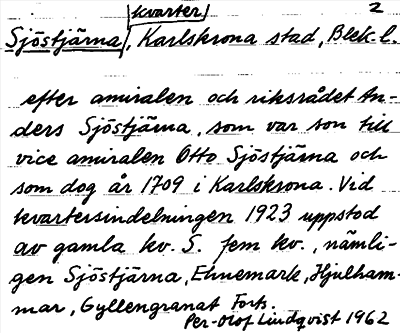 kvarter 2
Sjöstjärna, Karlskrona stad, Blek. l.
efter amiralen och riksrådet An-
ders Sjöstjärna, som var son till
vice amiralen Otto Sjöstjärna och
som dog år 1709 i Karlskrona. Vid
kvartersindelningen 1923 uppstod
av gamla kv. S. fem kv., nämli-
gen Sjöstjärna, Ehnemark, Hjulham-
mar, Gyllengranat Forts.
Per-Olof Lindqvist 1962